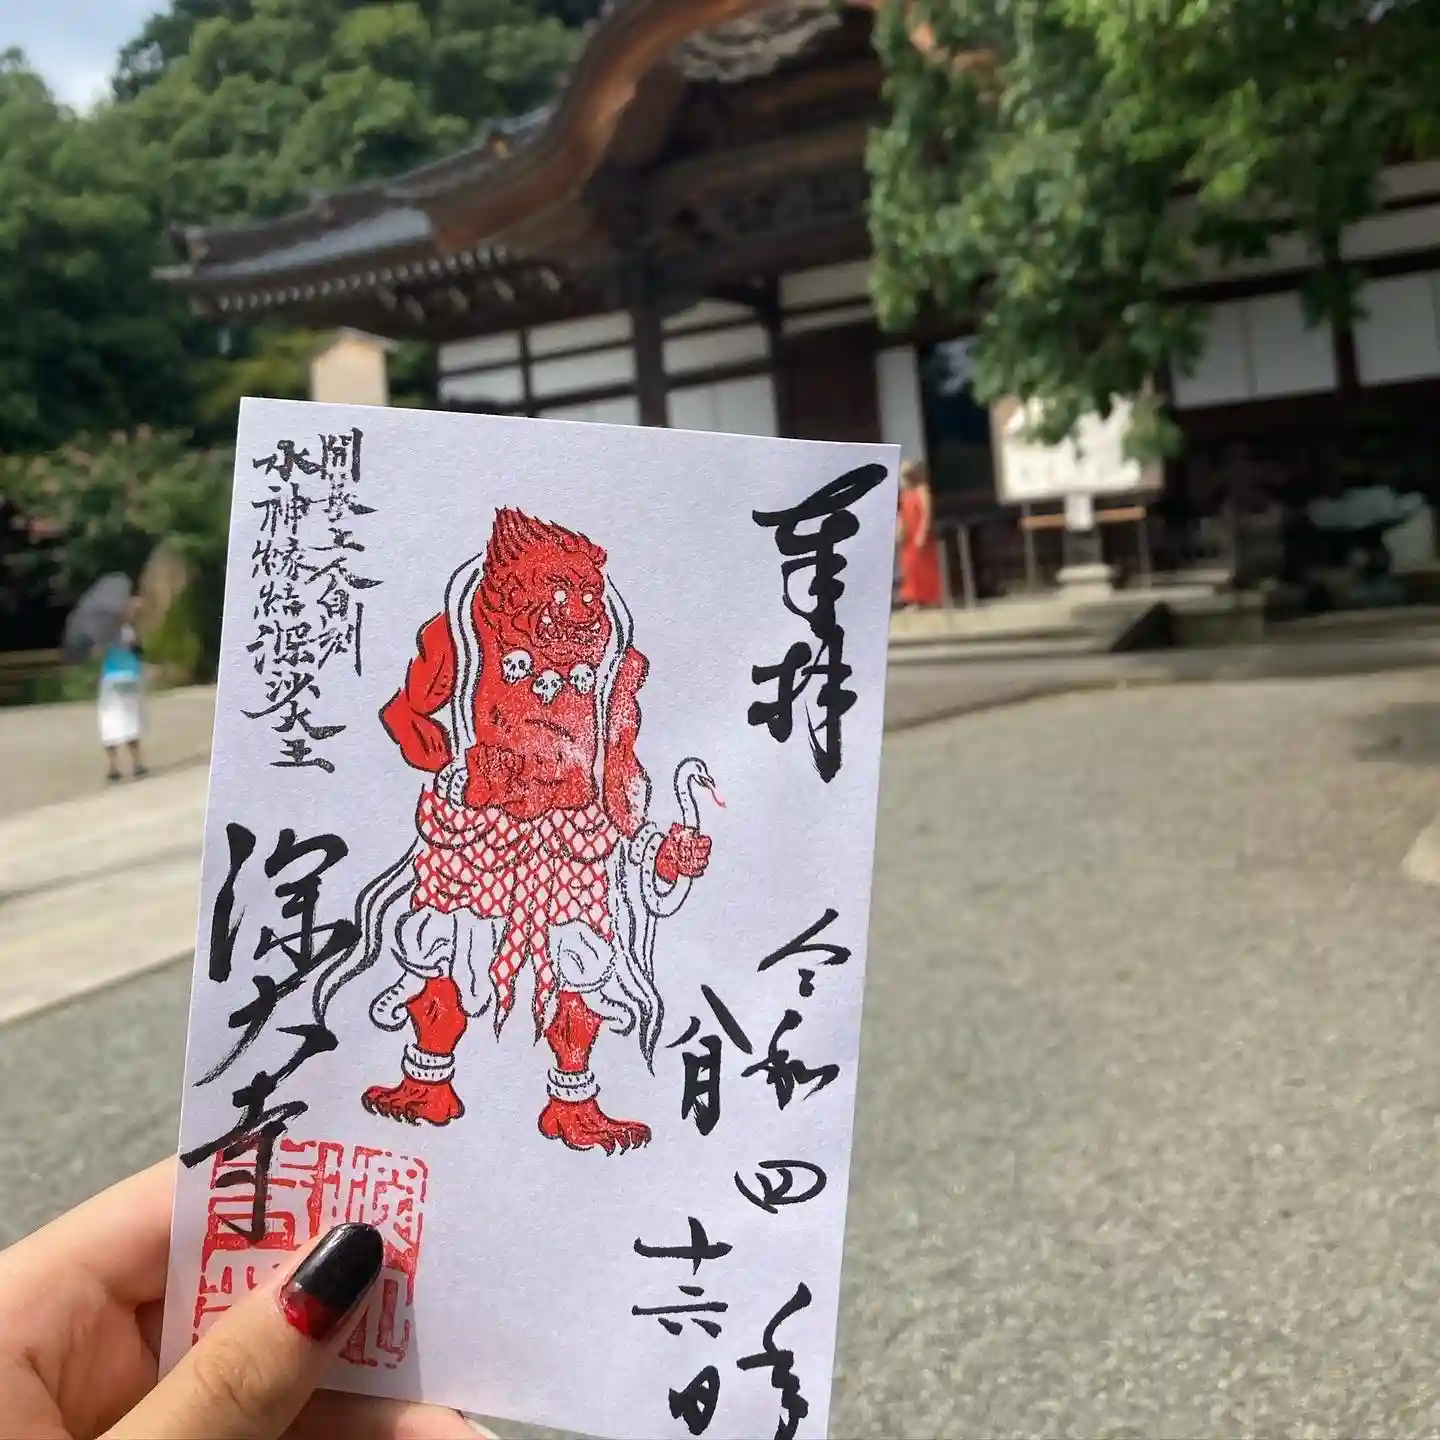 奉拝
令和四年
八月十六日
開基上人自刻
水神縁結深沙大王
深大寺